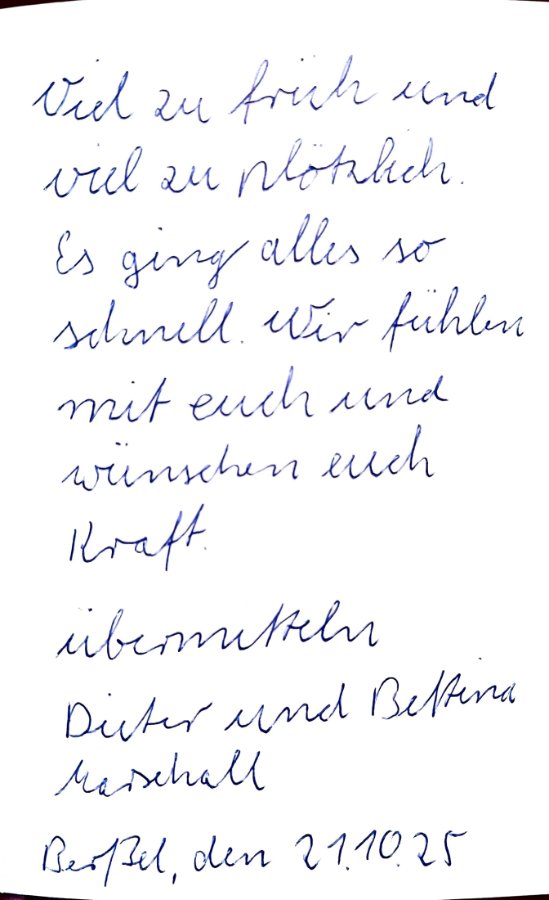 Viel zu früh und
viel zu plötzlich.
Es ging alles so
schnell. Wir fühlen
mit euch und
wünschen euch
Kraft.
übermitteln
Dieter und Bettina
Marschall
Berßel, den 21.10.25